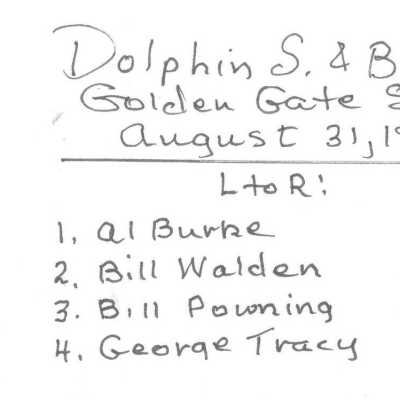 Dolphin S. & B
Golden Gate S
August 31, 19
L to R:
1. Al Burke
2. Bill Walden
3. Bill Powning
4. George Tracy